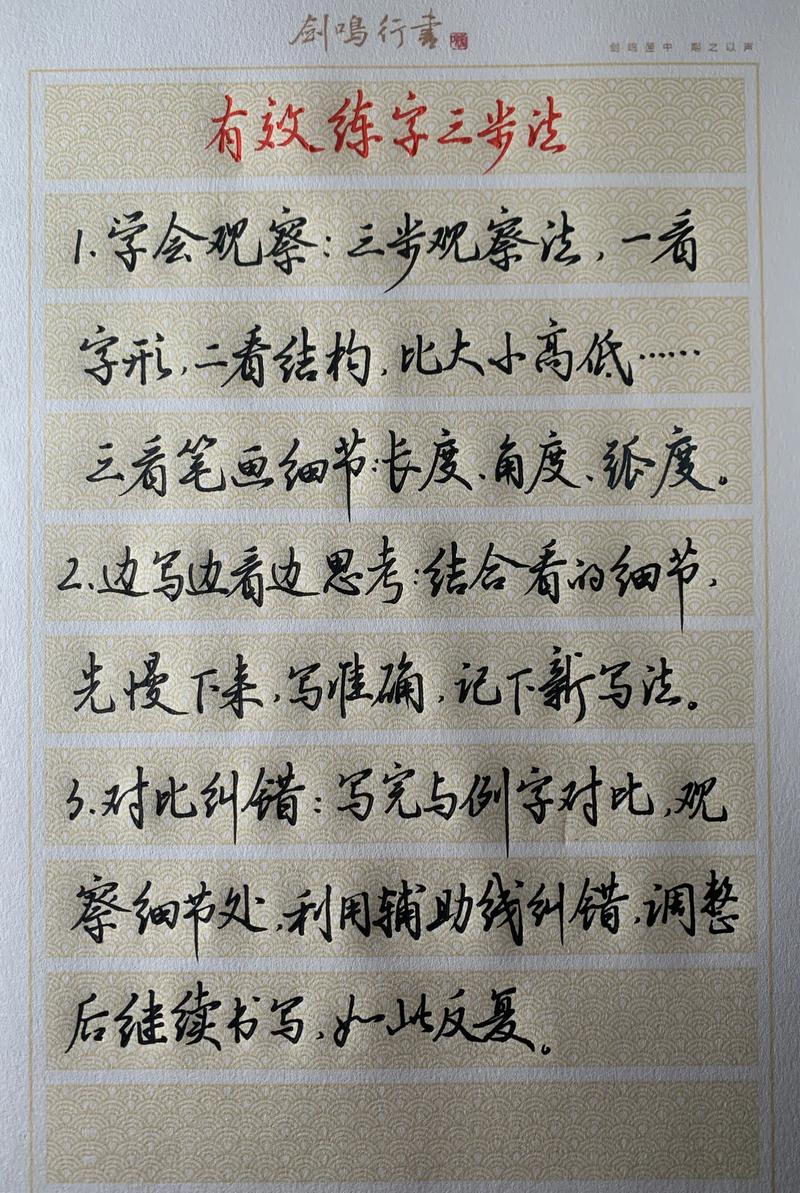 剑鸣行书
剑鸣匣中 期之以声
有效练字三步法
1.学会观察:三步观察法,一看
字形,二看结构,比大小高低……
三看笔画细节:长度、角度、弧度。
2.边写边看边思考:结合看的细节,
先慢下来,写准确,记下新写法。
3.对比纠错:写完与例字对比,观
察细节处,利用辅助线纠错,调整
后继续书写,如此反复。